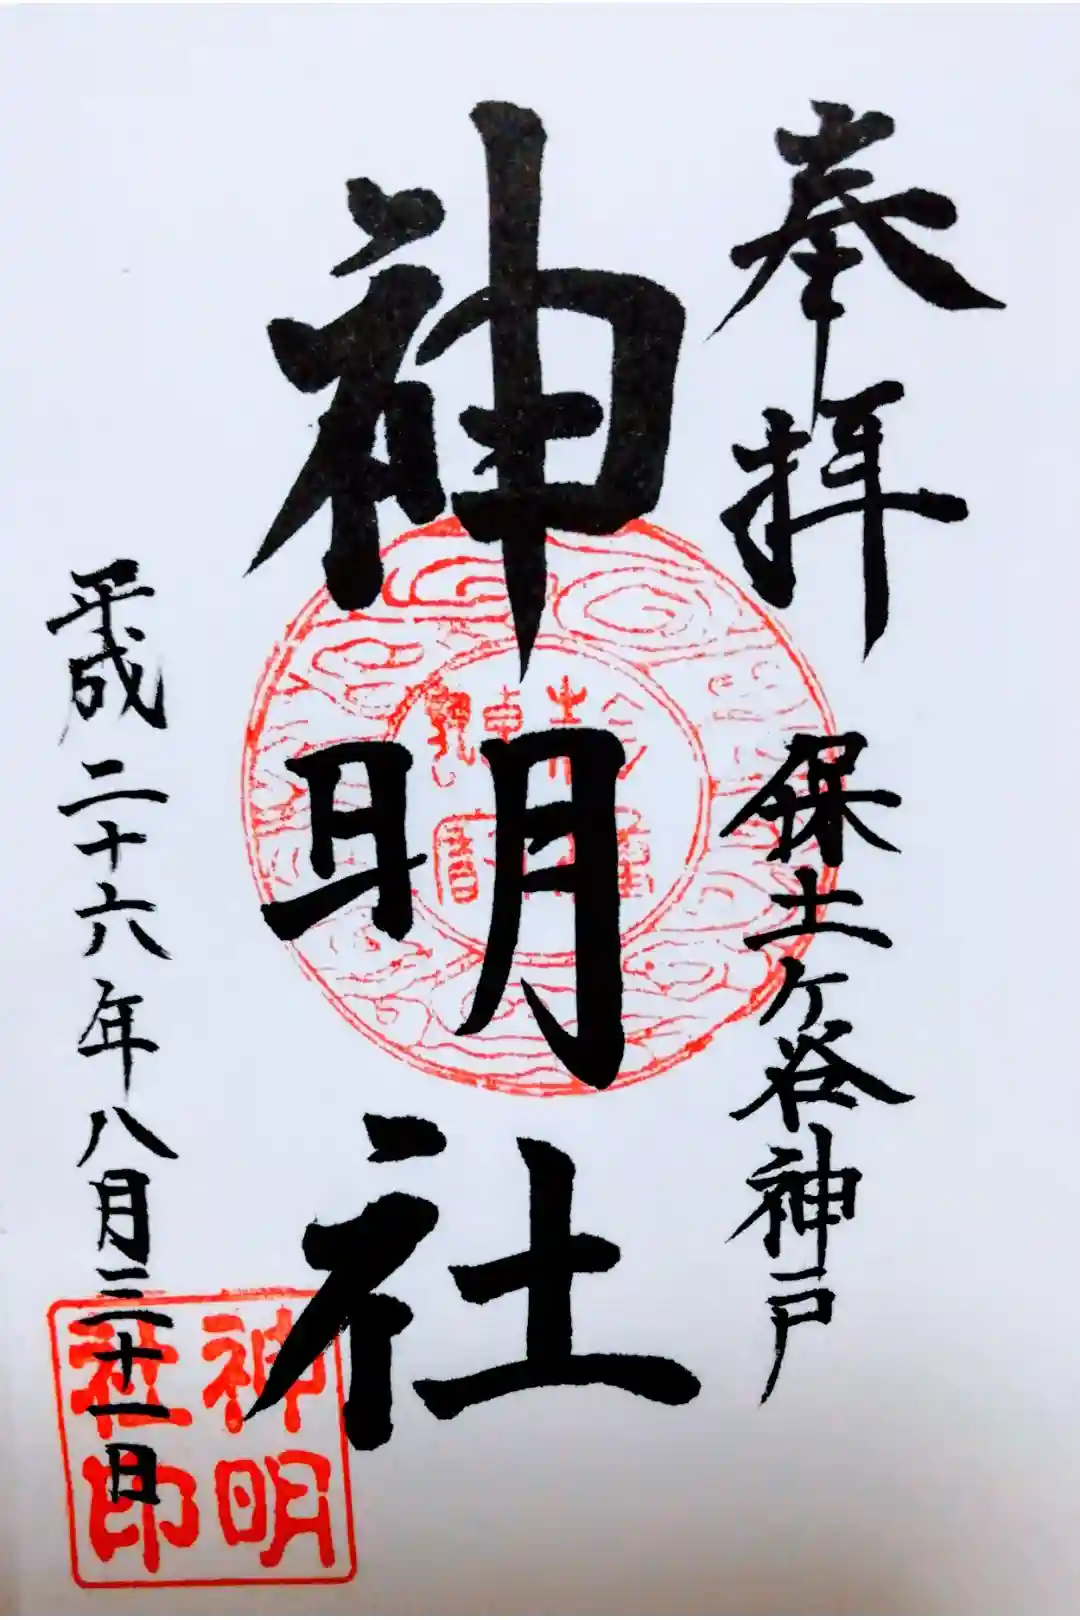 奉拝
保土ヶ谷神戸
神明社
平成二十六年八月三十一日
神明
社印